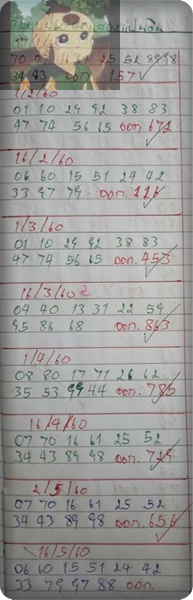 17
70 07 16 61 25 52 89 98
34 43 ออก. 157
1/2/60
01 10 29 92 38 83
47 74 56 65 ออก. 672
16/2/60
06 60 15 51 24 42
33 97 79 ออก. 116
1/3/60
01 10 29 92 38 83
47 74 56 65 ออก. 453
16/3/60
04 40 13 31 22 59
95 86 68 ออก. 863
1/4/60
08 80 17 71 26 62
35 53 99 44 ออก. 785
16/4/60
07 70 16 61 25 52
34 43 89 98 ออก. 729
2/5/60
07 70 16 61 25 52
34 43 89 98 ออก. 656
16/5/60
06 60 15 51 24 42
33 79 97 88 ออก.